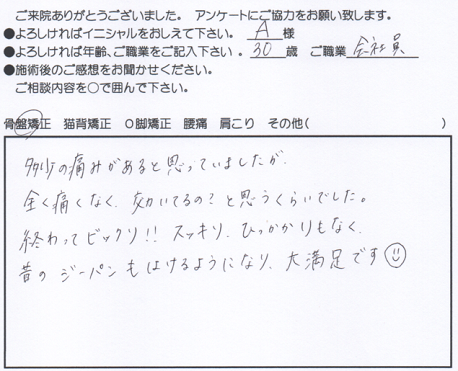 ご来院ありがとうございました。 アンケートにご協力をお願い致します。
●よろしければイニシャルをおしえて下さい。 A 様
●よろしければ年齢、ご職業をご記入下さい 。 30 歳 ご職業 会社員
●施術後のご感想をお聞かせください。
ご相談内容を○で囲んで下さい。
骨盤矯正 猫背矯正 O脚矯正 腰痛 肩こり その他( )
多少の痛みがあると思っていましたが、
全く痛くなく、効いてるの?と思うくらいでした。
終わってビックリ!! スッキリ、ひっかかりもなく、
昔の ジーパンもはけるようになり、大満足です